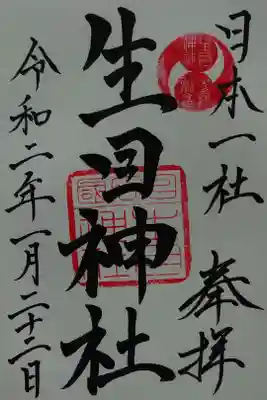 日本一社　奉拝
生目神社
令和二年一月二十二日